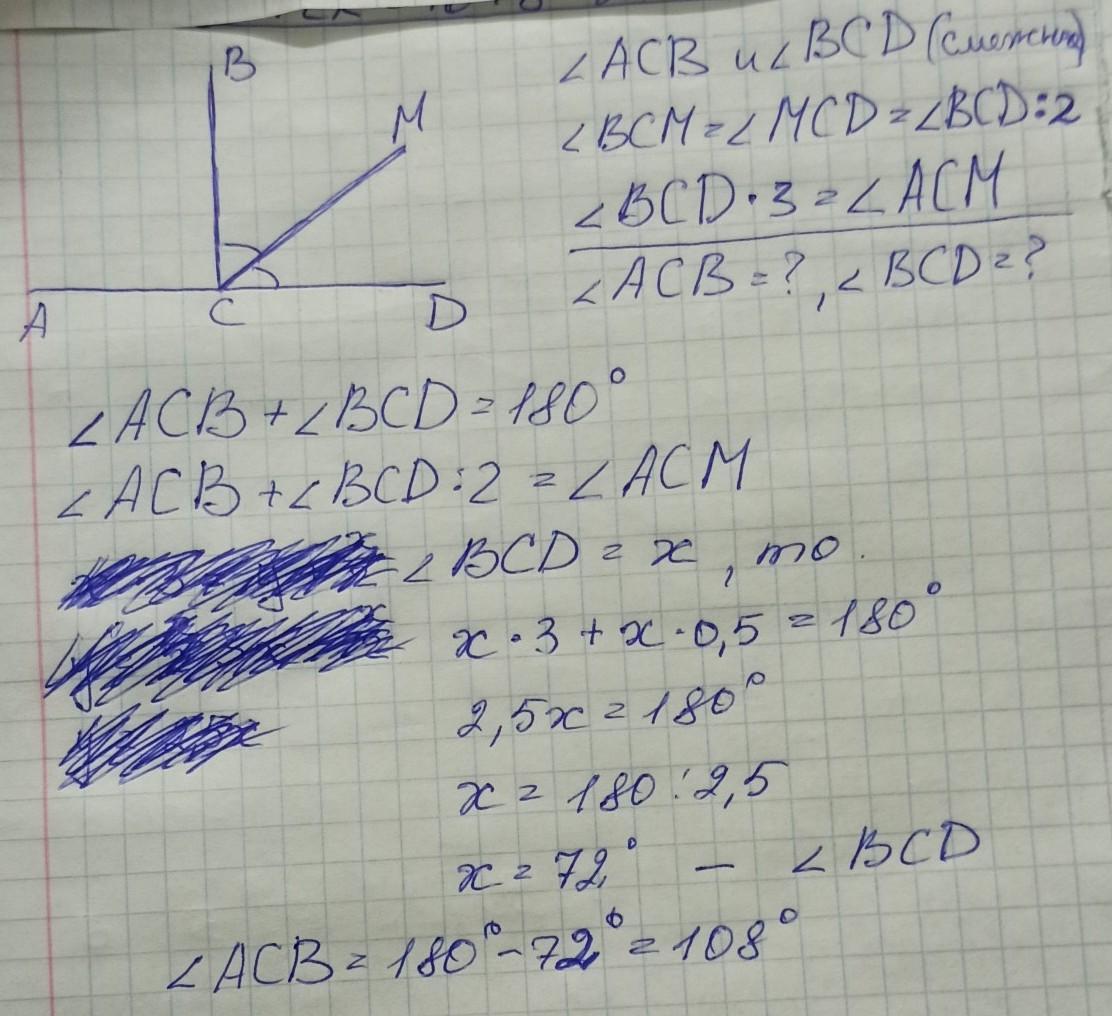 B
M
A
C
D
∠ACB и ∠BCD (смежные)
∠BCM = ∠MCD = ∠BCD:2
∠BCD · 3 = ∠ACM
∠ACB = ?, ∠BCD = ?
∠ACB + ∠BCD = 180°
∠ACB + ∠BCD:2 = ∠ACM
∠BCD = x, то
x · 3 + x · 0,5 = 180°
2,5x = 180°
x = 180 : 2,5
x = 72° — ∠BCD
∠ACB = 180° - 72° = 108°